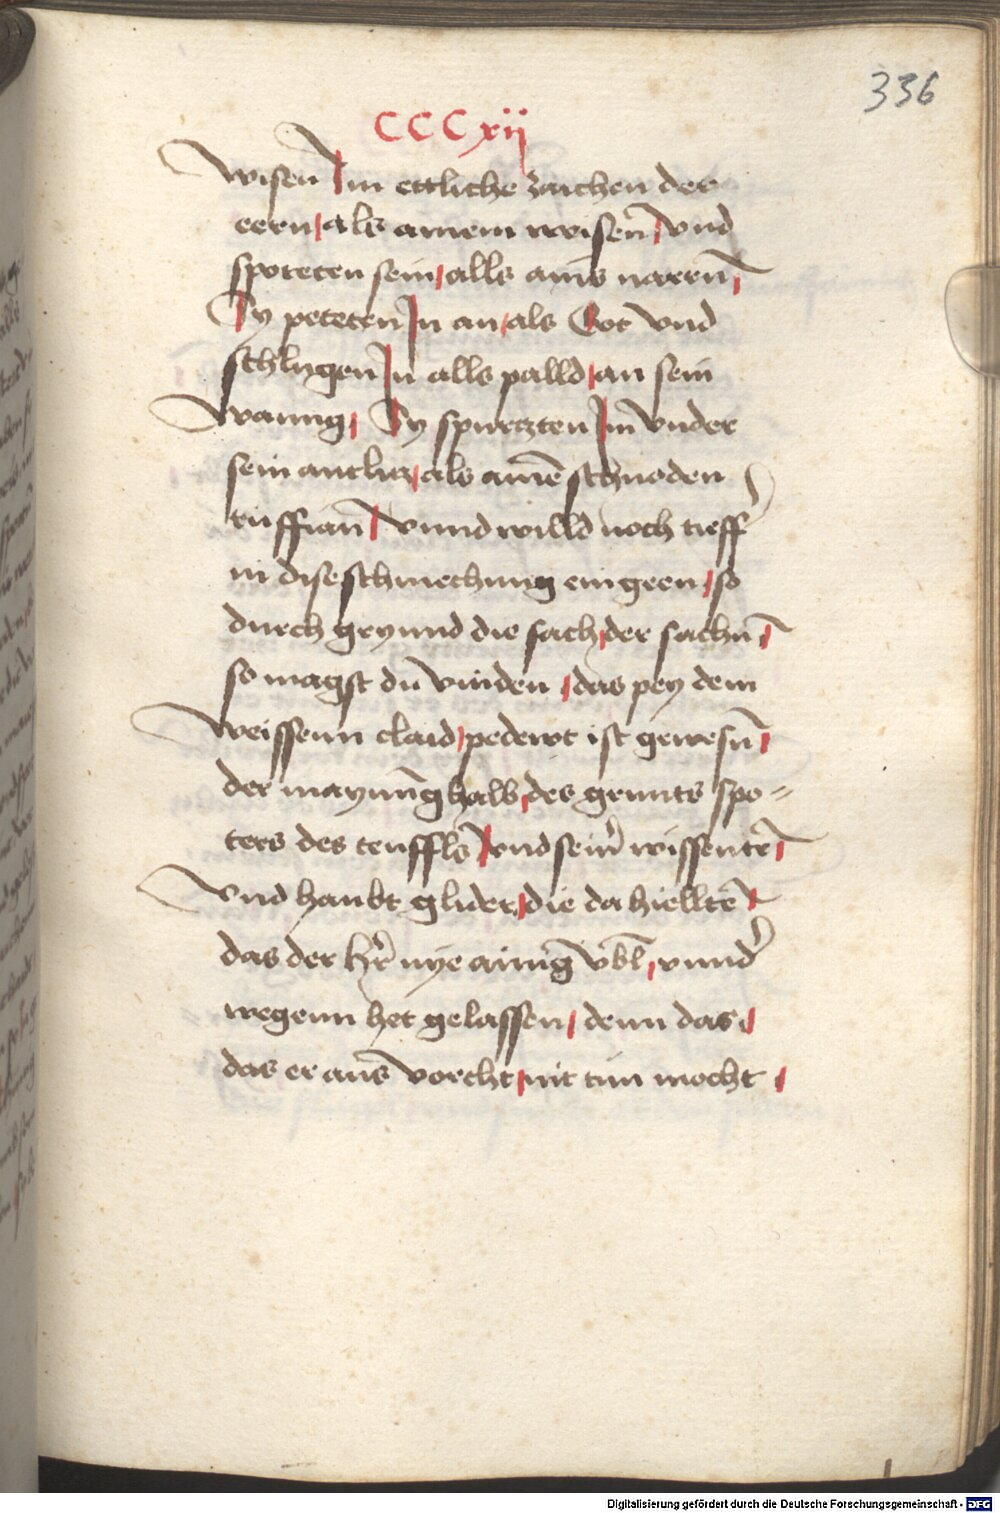 336
CCCxij
wisen̄ Im ettliche zaichen der
eern / als ainem weisen̄ / vnd
spoteten sein / alls ains narren̄ /
Sy peteten In an / als Got vnd
schlugen In alls palld / an sein
wanng / Sy spurtzten Im vnder
sein antlitz / als ainē schnöden
ruffian̄ / vnnd willd noch tieff
in dise schmechung eingeen / so
durch grynnd die sach / der sachn̄ /
so magst dū vinden / das pey dem
weissenn claid / pedewt ist gewesn̄ /
der maynūg halb / des grunts spo=
ters des teuffls / vnd seinr̄ wissenter̄ /
vnd haubt glider / die da hielltē /
das der hr̄ nye ainīg vbl̄ / vnnd̄
wegenn het gelassen / denn das /
das er aus vorcht / nit tun mocht /
Digitalisierung gefördert durch die Deutsche Forschungsgemeinschaft - DFG